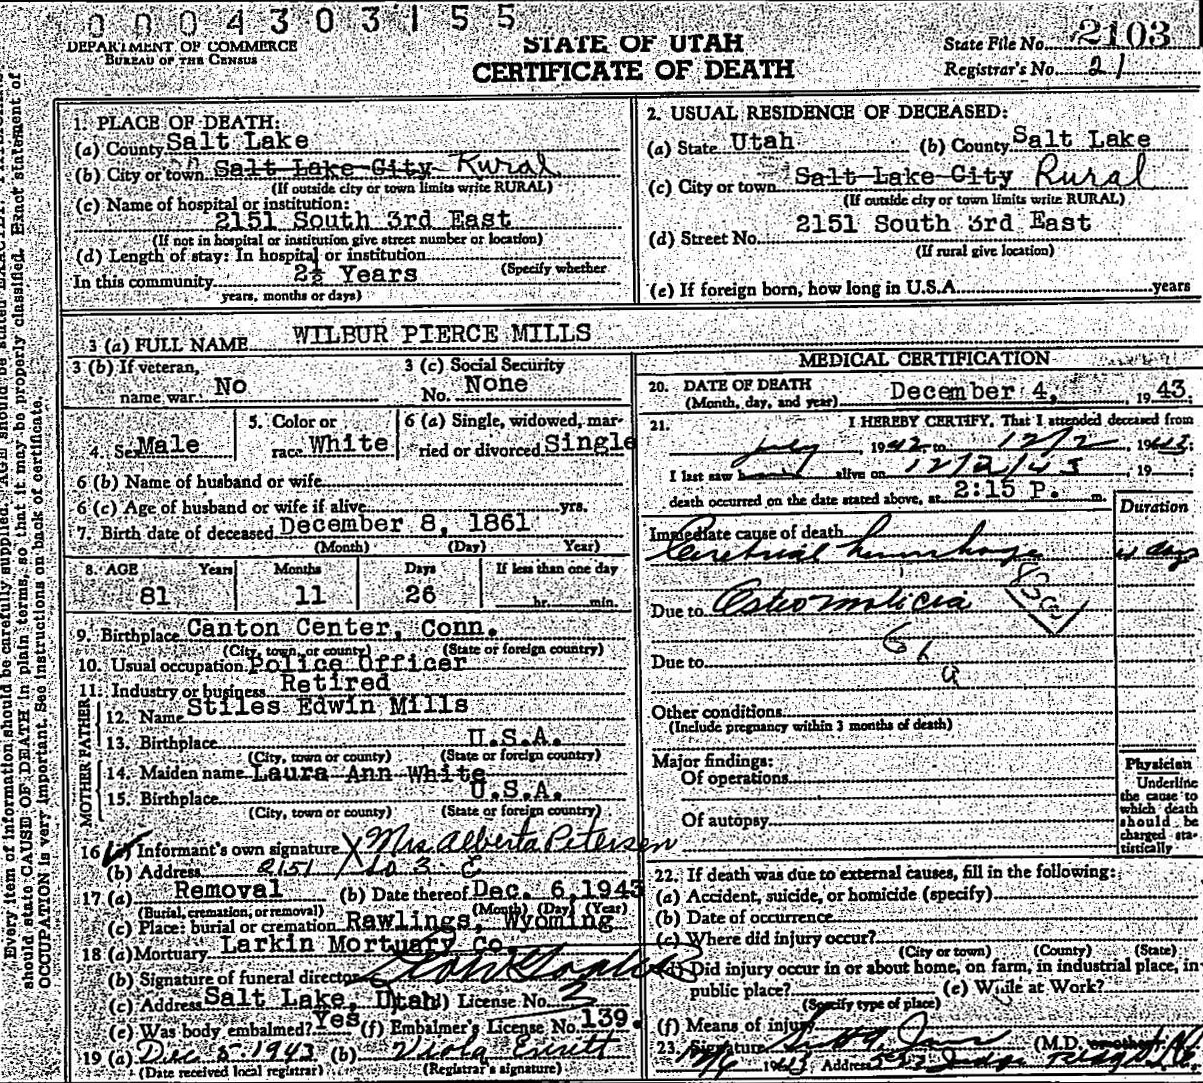 0004303155
DEPARTMENT OF COMMERCE
BUREAU OF THE CENSUS
STATE OF UTAH
CERTIFICATE OF DEATH
State File No. 2103
Registrar's No. 21
1. PLACE OF DEATH:
(a) County Salt Lake
(b) City or town Salt Lake City Rural
(If outside city or town limits write RURAL)
(c) Name of hospital or institution:
2151 South 3rd East
(If not in hospital or institution give street number or location)
(d) Length of stay: In hospital or institution
(Specify whether
In this community 2½ Years
years, months or days)
2. USUAL RESIDENCE OF DECEASED:
(a) State Utah (b) County Salt Lake
(c) City or town Salt Lake City Rural
(If outside city or town limits write RURAL)
(d) Street No. 2151 South 3rd East
(If rural give location)
(e) If foreign born, how long in U.S.A. years
3 (a) FULL NAME WILBUR PIERCE MILLS
3 (b) If veteran, name war No
3 (c) Social Security No. None
4. Sex Male
5. Color or race White
6 (a) Single, widowed, married or divorced Single
6 (b) Name of husband or wife
6 (c) Age of husband or wife if alive yrs.
7. Birth date of deceased December 8, 1861
(Month) (Day) Year)
8. AGE Years Months Days If less than one day
81 11 26 hr. min.
9. Birthplace Canton Center, Conn.
(City, town, or county) (State or foreign country)
10. Usual occupation Police Officer
11. Industry or business Retired
FATHER
12. Name Stiles Edwin Mills
13. Birthplace U.S.A.
(City, town or county) (State or foreign country)
MOTHER
14. Maiden name Laura Ann White
15. Birthplace U.S.A.
(City, town or county) (State or foreign country)
16 Informant's own signature X Mrs. Alberta Petersen
(b) Address 2151 So 3 E
17 (a) Removal (b) Date thereof Dec. 6, 1943
(Burial, cremation, or removal) (Month) (Day) (Year)
(c) Place: burial or cremation Rawlings, Wyoming
18 (a) Mortuary Larkin Mortuary Co.
(b) Signature of funeral director
(c) Address Salt Lake, Utah (d) License No. 3
(e) Was body embalmed? Yes (f) Embalmer's License No. 139.
19 (a) Dec 5-1943 (b) Viola Everett
(Date received local registrar) (Registrar's signature)
MEDICAL CERTIFICATION
20. DATE OF DEATH December 4, 1943.
(Month, day, and year)
21. I HEREBY CERTIFY, That I attended deceased from
July, 1942 to 12/2, 1943.
I last saw alive on 12/2/43, 19
death occurred on the date stated above, at 2:15 P. m.
Duration
Immediate cause of death
Cerebral hemorrhage days
Due to Osteomalicia
Due to
Other conditions
(Include pregnancy within 3 months of death)
Major findings:
Of operations
Of autopsy
Physician
Underline
the cause to
which death
should be
charged sta-
tistically
22. If death was due to external causes, fill in the following:
(a) Accident, suicide, or homicide (specify)
(b) Date of occurrence
(c) Where did injury occur?
(City or town) (County) (State)
(d) Did injury occur in or about home, on farm, in industrial place, in
public place? (e) While at Work?
(Specify type of place)
(f) Means of injury
23. Signature (M.D. or other)
12/6 1943 Address Judge Bldg
Every item of information should be carefully supplied. AGE should be stated EXACTLY.
should state CAUSE OF DEATH in plain terms, so that it may be properly classified. Exact statement of
OCCUPATION is very important. See instructions on back of certificate.